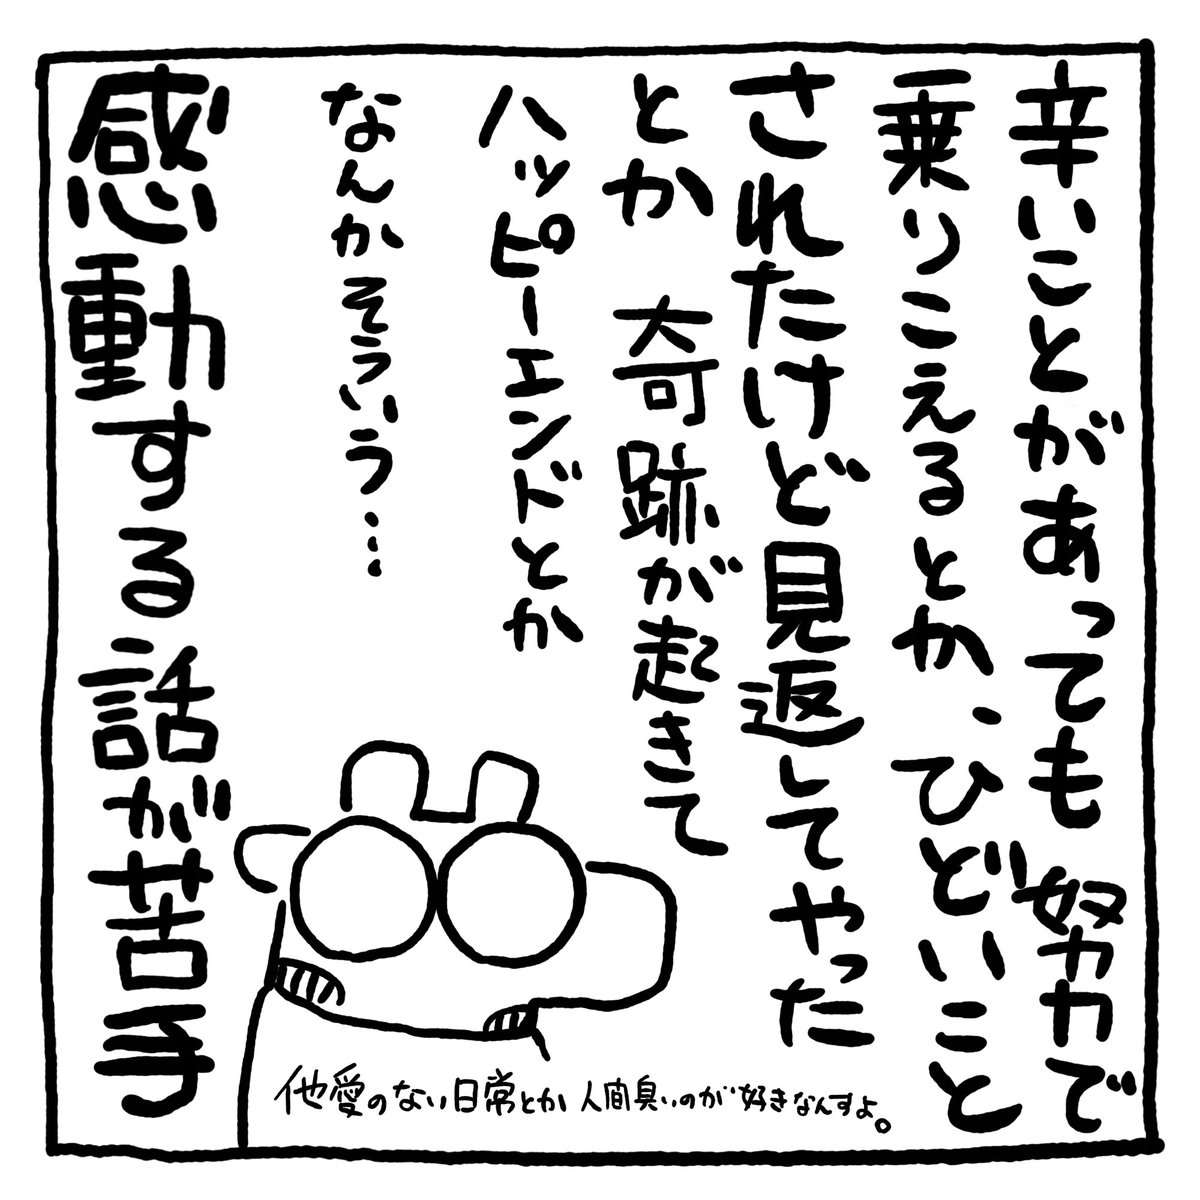 辛いことがあっても努力で
乗りこえるとか、ひどいこと
されたけど見返してやった
とか 奇跡が起きて
ハッピーエンドとか
なんかそういう…
感動する話が苦手
他愛のない日常とか人間臭いのが好きなんすよ。